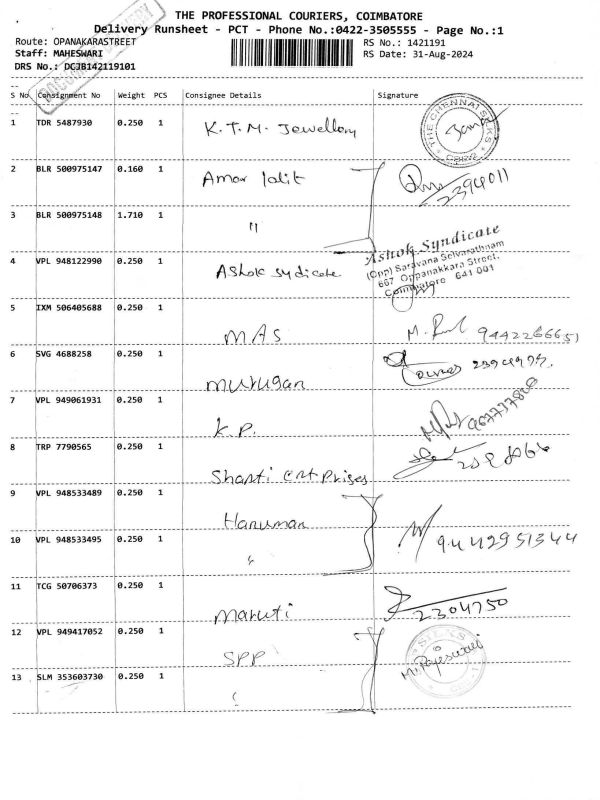 THE PROFESSIONAL COURIERS, COIMBATORE
Delivery Runsheet - PCT - Phone No.:0422-3505555 - Page No.:1
Route: OPANAKARASTREET
RS No.: 1421191
Staff: MAHESWARI
RS Date: 31-Aug-2024
DRS No.: DCJB142119101
S No Consignment No Weight PCS Consignee Details Signature
1 TDR 5487930 0.250 1 K.T.M. Jewellery
THE CHENNAI SILKS
2 BLR 500975147 0.160 1 Amar lalit 2394011
3 BLR 500975148 1.710 1 "
4 VPL 948122990 0.250 1 Ashok sydicate
Ashok Syndicate
(Opp) Saravana Selvarathnam
667 Oppanakkara Street,
Coimbatore 641 001
5 IXM 506405688 0.250 1 MAS 9442266651
6 SVG 4688258 0.250 1 murugan
7 VPL 949061931 0.250 1 K.P.
8 TRP 7790565 0.250 1 Shanti entprises
9 VPL 948533489 0.250 1 Hanuman
10 VPL 948533495 0.250 1 " 9442951344
11 TCG 50706373 0.250 1 maruti 2304750
12 VPL 949417052 0.250 1 SPP
SILKS
M. Rajeswari
13 SLM 353603730 0.250 1 "